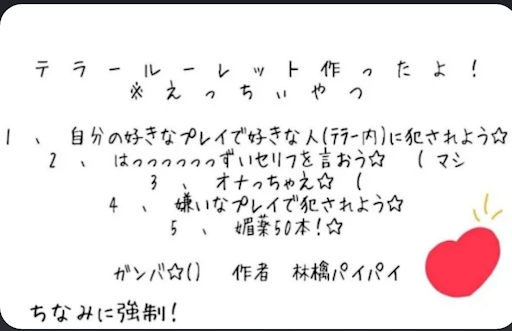 テラールーレット作ったよ!
※えっちぃやつ
1、自分の好きなプレイで好きな人(テラー内)に犯されよう☆
2、はっっっっっっずいセリフを言おう☆ (マシ
3、オナっちゃえ☆ (
4、嫌いなプレイで犯されよう☆
5、媚薬50本!☆
ガンバ☆() 作者 林檎パイパイ
ちなみに強制!